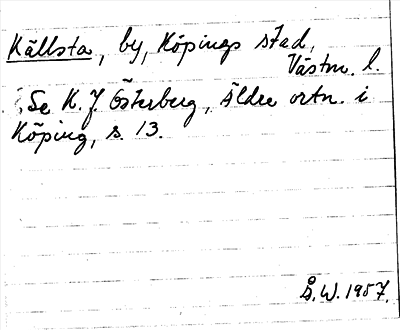 Källsta, by, Köpings stad,
Västm. l.
Se K. J. Österberg, Äldre ortn. i
Köping, s. 13.
Å.W. 1957.